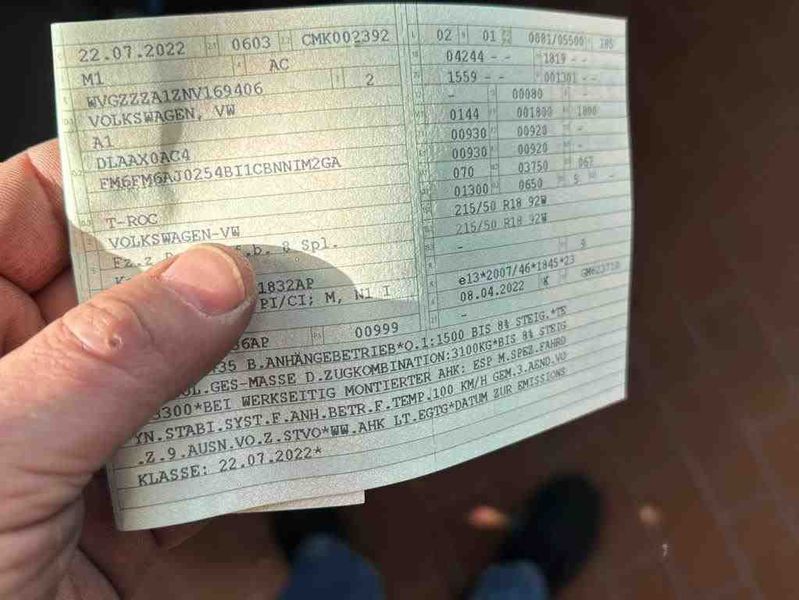 22.07.2022 0603 CMK002392
M1 AC
WVGZZZA1ZNV169406 2
VOLKSWAGEN, VW
A1
DLAAX0AC4
FM6FM6AJ0254BI1CBNNIM2GA
T-ROC
VOLKSWAGEN-VW
Fz.z. b. 8 Spl.
1832AP
PI/CI; M, N1 I
6AP 00999
02 01 0081/05500
04244 - - 1819 - -
1559 - - 001301 - -
- 00080
0144 001800 1800
00930 00920 -
00930 00920 -
070 03750 067
01300 0650 5 -
215/50 R18 92W
215/50 R18 92W
-
9
e13*2007/46*1845*23
08.04.2022 K
35 B.ANHÄNGEBETRIEB*O.1:1500 BIS 8% STEIG.*TE
L.GES-MASSE D.ZUGKOMBINATION:3100KG*BIS 8% STEIG
3300*BEI WERKSEITIG MONTIERTER AHK: ESP M.SPEZ.FAHRD
YN.STABI.SYST.F.ANH.BETR.F.TEMP.100 KM/H GEM.3.AEND.VO
.Z.9.AUSN.VO.Z.STVO*WW.AHK LT.EGTG*DATUM ZUR EMISSIONS
KLASSE: 22.07.2022*